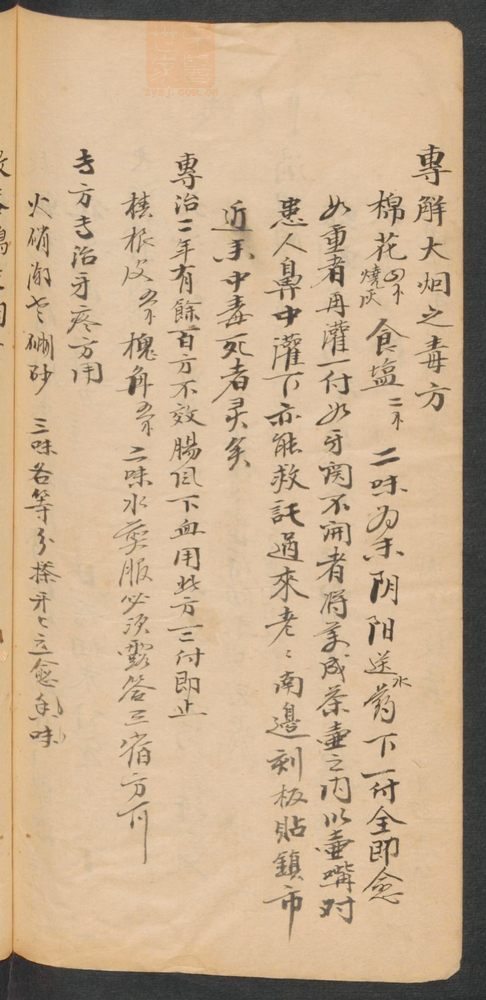 專解大烟之毒方
棉花四个燒灰 食塩二个 二味为末阴阳水送药下一付全即愈
如重者再灌一付如牙関不開者将药成茶壶之内以壶嘴对
患人鼻中灌下亦能救託過來老、南邊刻板貼鎮市
近末中毒死者灵矣
專治二年有餘百方不效腸风下血用此方三付即止
椿根皮 槐角 二味水煎服必須露答三宿方可
专方专治牙疼方用
火硝 硼砂 三味各等分搽牙上立愈